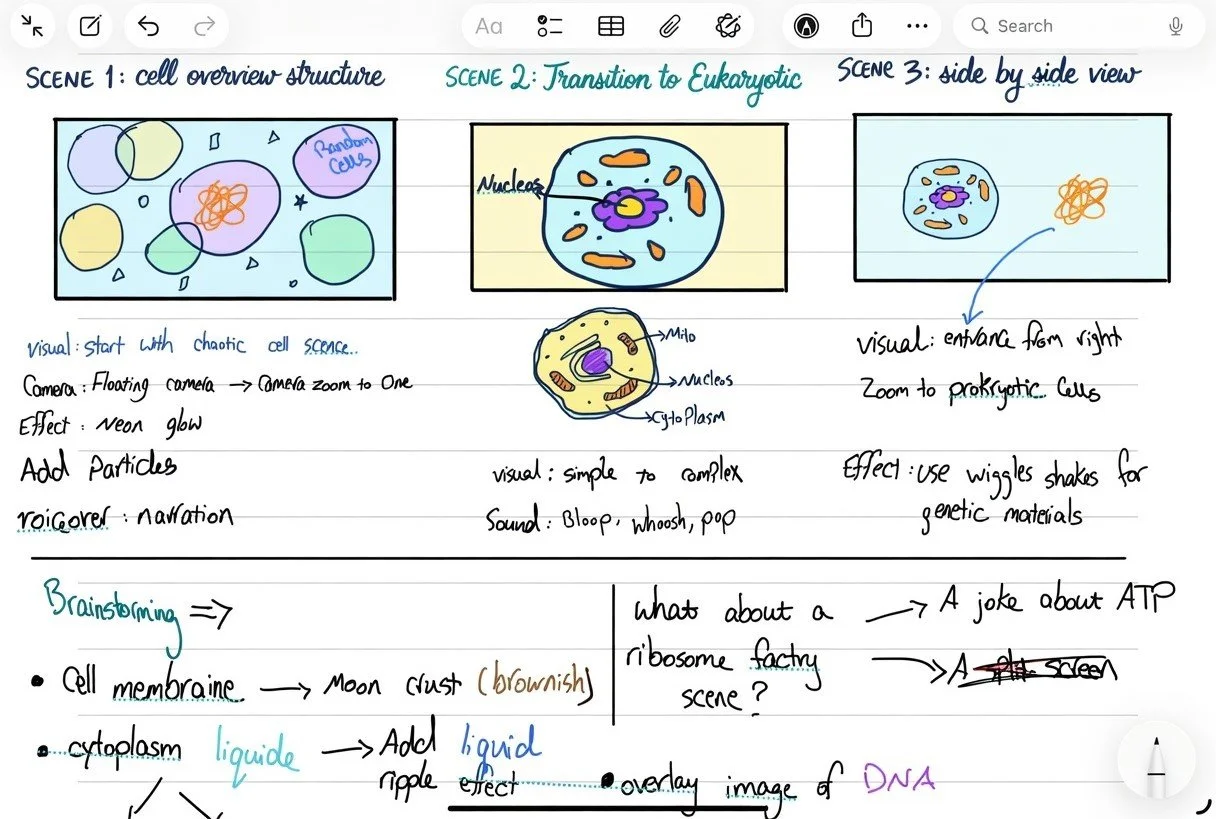 Aa
Search
SCENE 1: cell overview structure
Random
Cells
Visual: start with chaotic cell scence
Camera: Floating camera → Camera zoom to One
Effect: Neon glow
Add Particles
voiceover: narration
SCENE 2: Transition to Eukaryotic
Nucleos
Mito
Nucleos
Cytoplasm
visual: simple to complex
Sound: Bloop, whoosh, pop
SCENE 3: side by side view
visual: entrance from right
Zoom to prokryotic Cells
Effect: use wiggles shakes for
genetic materials
Brainstorming ⇒
• Cell membraine → Moon crust (brownish)
• cytoplasm liquide → Add liquid
ripple effect
what about a
ribosome factry
scene?
→ A joke about ATP
→ A split screen
• overlay image of DNA